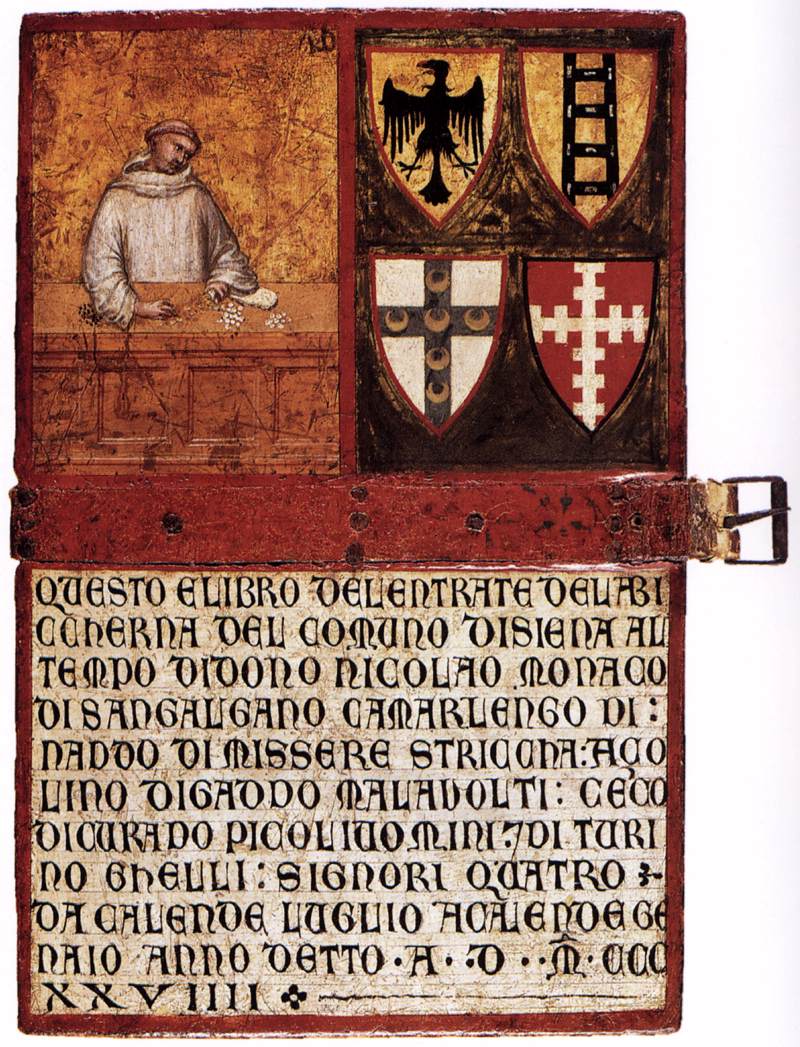 QUESTO ELIBRO DELENTRATE DELABI
CCHERNA DEL COMUNO DISIENA AL
TEMPO DIDONO NICOLAO MONACO
DI SANGALGANO CAMARLENGO DI:
NADDO DI MISSERE STRICCHA: AÇO
LINO DIGADDO MALAVOLTI: CECO
DICURADO PICOLIUOMINI: 7DI TURI
NO GHELLI: SIGNORI QUATRO
DA CALENDE LUGLIO ACALENDE GE
NAIO ANNO DETTO · A · D · M · CCC
XXVIIII